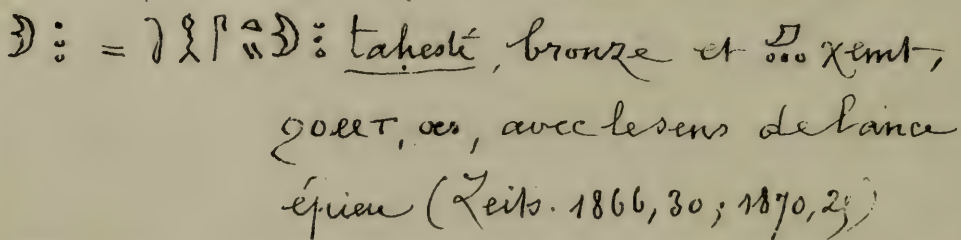 = tahesté, bronze et xemt,
ϩⲟⲙⲧ, æs, avec le sens de lance
épieu (Zeits. 1866, 30; 1870, 2;)